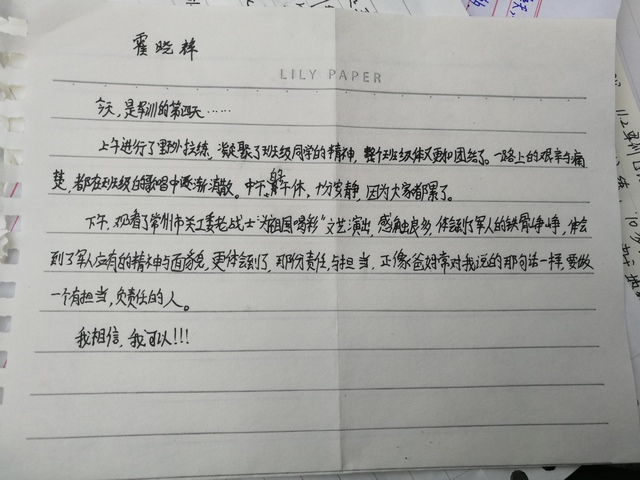 霍晓梓
LILY PAPER
今天，是军训的第四天……
上午进行了野外拉练，凝聚了班级同学的精神，整个班级体又更加团结了。一路上的艰辛与痛
楚，都在班级的歌唱中逐渐消散。中午午休，十分安静，因为大家都累了。
下午，观看了常州市关工委老战士“为祖国喝彩”文艺演出，感触良多，体会到了军人的铁骨铮铮，体会
到了军人应有的精神与面貌，更体会到了，那份责任与担当，正像爸妈常对我说的那句话一样，要做
一个有担当，负责任的人。
我相信，我可以!!!